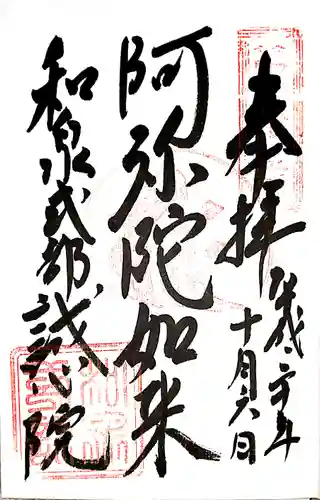 奉拝
平成二十年
十月六日
阿弥陀如来
和泉式部誠心院